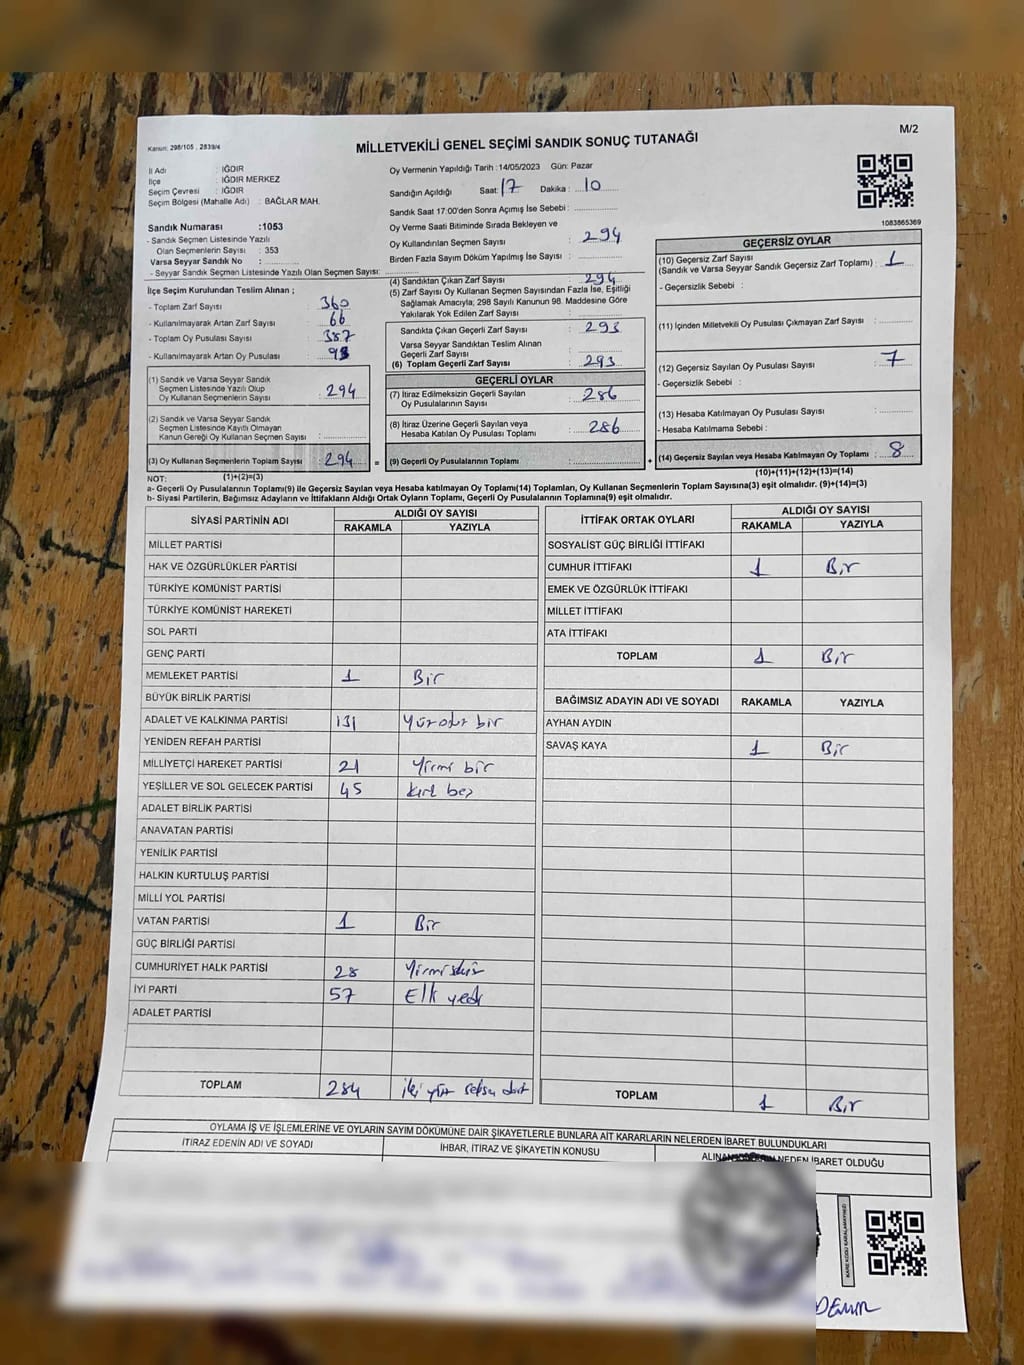 M/2
Kanun: 298/105 , 2839/4
MİLLETVEKİLİ GENEL SEÇİMİ SANDIK SONUÇ TUTANAĞI
İl Adı : IĞDIR
İlçe : IĞDIR MERKEZ
Seçim Çevresi : IĞDIR
Seçim Bölgesi (Mahalle Adı) : BAĞLAR MAH.
Oy Vermenin Yapıldığı Tarih :14/05/2023 Gün: Pazar
Sandığın Açıldığı Saat: 17 Dakika : 10
Sandık Saat 17:00'den Sonra Açımış İse Sebebi :
Sandık Numarası :1053
- Sandık Seçmen Listesinde Yazılı
Olan Seçmenlerin Sayısı : 353
Varsa Seyyar Sandık No :
- Seyyar Sandık Seçmen Listesinde Yazılı Olan Seçmen Sayısı:
Oy Verme Saati Bitiminde Sırada Bekleyen ve
Oy Kullandırılan Seçmen Sayısı : 294
Birden Fazla Sayım Döküm Yapılmış İse Sayısı :
1083865369
İlçe Seçim Kurulundan Teslim Alınan ;
- Toplam Zarf Sayısı : 360
- Kullanılmayarak Artan Zarf Sayısı : 66
- Toplam Oy Pusulası Sayısı : 387
- Kullanılmayarak Artan Oy Pusulası :
(1) Sandık ve Varsa Seyyar Sandık
Seçmen Listesinde Yazılı Olup
Oy Kullanan Seçmenlerin Sayısı : 294
(2) Sandık ve Varsa Seyyar Sandık
Seçmen Listesinde Kayıtlı Olmayan
Kanun Gereği Oy Kullanan Seçmen Sayısı :
(3) Oy Kullanan Seçmenlerin Toplam Sayısı : 294 =
(4) Sandıktan Çıkan Zarf Sayısı : 294
(5) Zarf Sayısı Oy Kullanan Seçmen Sayısından Fazla İse, Eşitliği
Sağlamak Amacıyla; 298 Sayılı Kanunun 98. Maddesine Göre
Yakılarak Yok Edilen Zarf Sayısı :
Sandıkta Çıkan Geçerli Zarf Sayısı : 293
Varsa Seyyar Sandıktan Teslim Alınan
Geçerli Zarf Sayısı :
(6) Toplam Geçerli Zarf Sayısı : 293
GEÇERLİ OYLAR
(7) İtiraz Edilmeksizin Geçerli Sayılan
Oy Pusulalarının Sayısı : 286
(8) İtiraz Üzerine Geçerli Sayılan veya
Hesaba Katılan Oy Pusulası Toplamı : 286
(9) Geçerli Oy Pusulalarının Toplamı : +
GEÇERSİZ OYLAR
(10) Geçersiz Zarf Sayısı
(Sandık ve Varsa Seyyar Sandık Geçersiz Zarf Toplamı) : 1
- Geçersizlik Sebebi :
(11) İçinden Milletvekili Oy Pusulası Çıkmayan Zarf Sayısı :
(12) Geçersiz Sayılan Oy Pusulası Sayısı : 7
- Geçersizlik Sebebi :
(13) Hesaba Katılmayan Oy Pusulası Sayısı :
- Hesaba Katılmama Sebebi :
(14) Geçersiz Sayılan veya Hesaba Katılmayan Oy Toplamı : 8
NOT: (1)+(2)=(3) (10)+(11)+(12)+(13)=(14)
a- Geçerli Oy Pusulalarının Toplamı(9) ile Geçersiz Sayılan veya Hesaba katılmayan Oy Toplamı(14) Toplamları, Oy Kullanan Seçmenlerin Toplam Sayısına(3) eşit olmalıdır. (9)+(14)=(3)
b- Siyasi Partilerin, Bağımsız Adayların ve İttifakların Aldığı Ortak Oyların Toplamı, Geçerli Oy Pusulalarının Toplamına(9) eşit olmalıdır.
SİYASİ PARTİNİN ADI ALDIĞI OY SAYISI
RAKAMLA YAZIYLA
MİLLET PARTİSİ
HAK VE ÖZGÜRLÜKLER PARTİSİ
TÜRKİYE KOMÜNİST PARTİSİ
TÜRKİYE KOMÜNİST HAREKETİ
SOL PARTİ
GENÇ PARTİ
MEMLEKET PARTİSİ 1 Bir
BÜYÜK BİRLİK PARTİSİ
ADALET VE KALKINMA PARTİSİ 131 bir
YENİDEN REFAH PARTİSİ
MİLLİYETÇİ HAREKET PARTİSİ 21 Yirmi bir
YEŞİLLER VE SOL GELECEK PARTİSİ 45 kırk beş
ADALET BİRLİK PARTİSİ
ANAVATAN PARTİSİ
YENİLİK PARTİSİ
HALKIN KURTULUŞ PARTİSİ
MİLLİ YOL PARTİSİ
VATAN PARTİSİ 1 Bir
GÜÇ BİRLİĞİ PARTİSİ
CUMHURİYET HALK PARTİSİ 28
İYİ PARTİ 57 Elli yedi
ADALET PARTİSİ
TOPLAM 284 iki yüz seksen dört
İTTİFAK ORTAK OYLARI ALDIĞI OY SAYISI
RAKAMLA YAZIYLA
SOSYALİST GÜÇ BİRLİĞİ İTTİFAKI
CUMHUR İTTİFAKI 1 Bir
EMEK VE ÖZGÜRLÜK İTTİFAKI
MİLLET İTTİFAKI
ATA İTTİFAKI
TOPLAM 1 Bir
BAĞIMSIZ ADAYIN ADI VE SOYADI RAKAMLA YAZIYLA
AYHAN AYDIN
SAVAŞ KAYA 1 Bir
TOPLAM 1 Bir
OYLAMA İŞ VE İŞLEMLERİNE VE OYLARIN SAYIM DÖKÜMÜNE DAİR ŞİKAYETLERLE BUNLARA AİT KARARLARIN NELERDEN İBARET BULUNDUKLARI
İTİRAZ EDENİN ADI VE SOYADI İHBAR, İTİRAZ VE ŞİKAYETİN KONUSU NEDEN İBARET OLDUĞU
KARE KODU KARALAMAYINIZ!
DEMİR